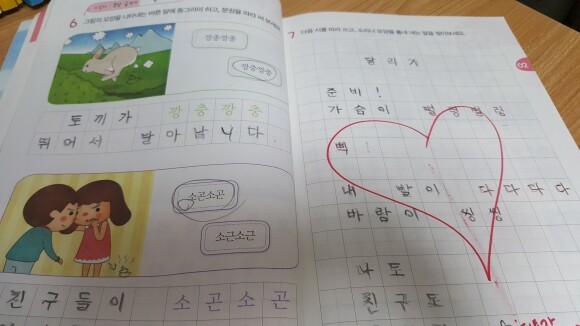 6 그림의 모양을 나타내는 바른 말에 동그라미 하고, 문장을 따라 써
깡총깡총
깡충깡충
토끼가 깡충깡충
뛰어서 달아납니다.
소곤소곤
소근소근
친구들이 소곤소곤
7 다음 시를 따라 쓰고, 소리나 모양을 흉내 내는 말을 찾아보세요.
02
달리기
준비!
가슴이 벌렁벌렁
삑
내 발이 다다다다
바람이 씽씽
나도
친구도